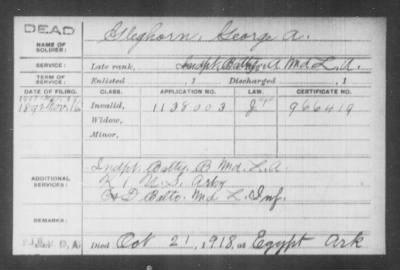 DEAD
NAME OF SOLDIER:
Gleghorn, George A.
SERVICE:
Late rank, Indpt. Batty. A Md. L. A.
TERM OF SERVICE:
Enlisted , 1 Discharged , 1
DATE OF FILING.
CLASS.
APPLICATION NO.
LAW.
CERTIFICATE NO.
Invalid, 1138003 966419
Widow,
Minor,
ADDITIONAL SERVICES:
Indpt. Batty. B Md. L. A.
U.S. Arty
Co D Md. Inf.
REMARKS:
Died Oct 21, 1918, at Egypt Ark